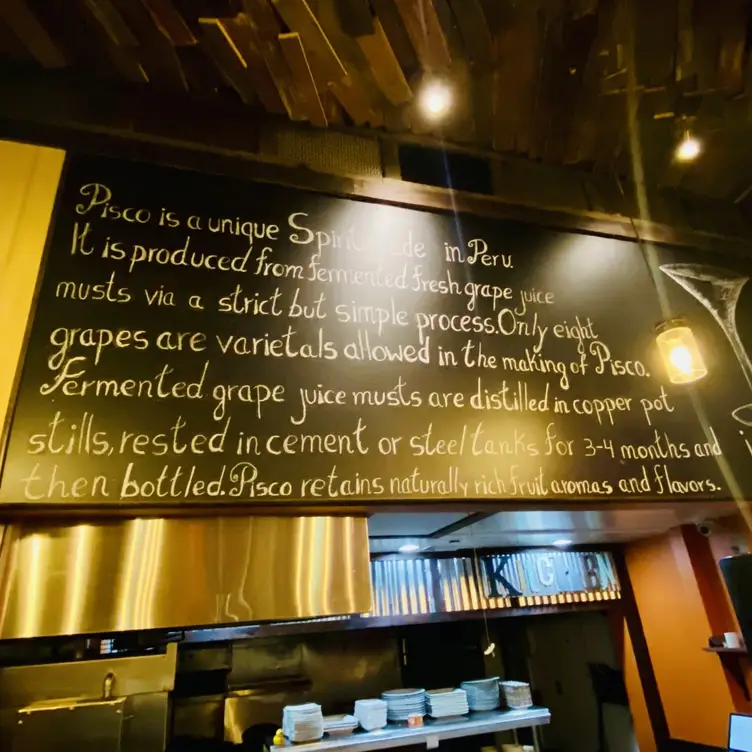 Pisco is a unique Spirit in Peru.
It is produced from fermented fresh grape juice
musts via a strict but simple process. Only eight
grapes are varietals allowed in the making of Pisco.
Fermented grape juice musts are distilled in copper pot
stills, rested in cement or steel tanks for 3-4 months and
then bottled. Pisco retains naturally rich fruit aromas and flavors.